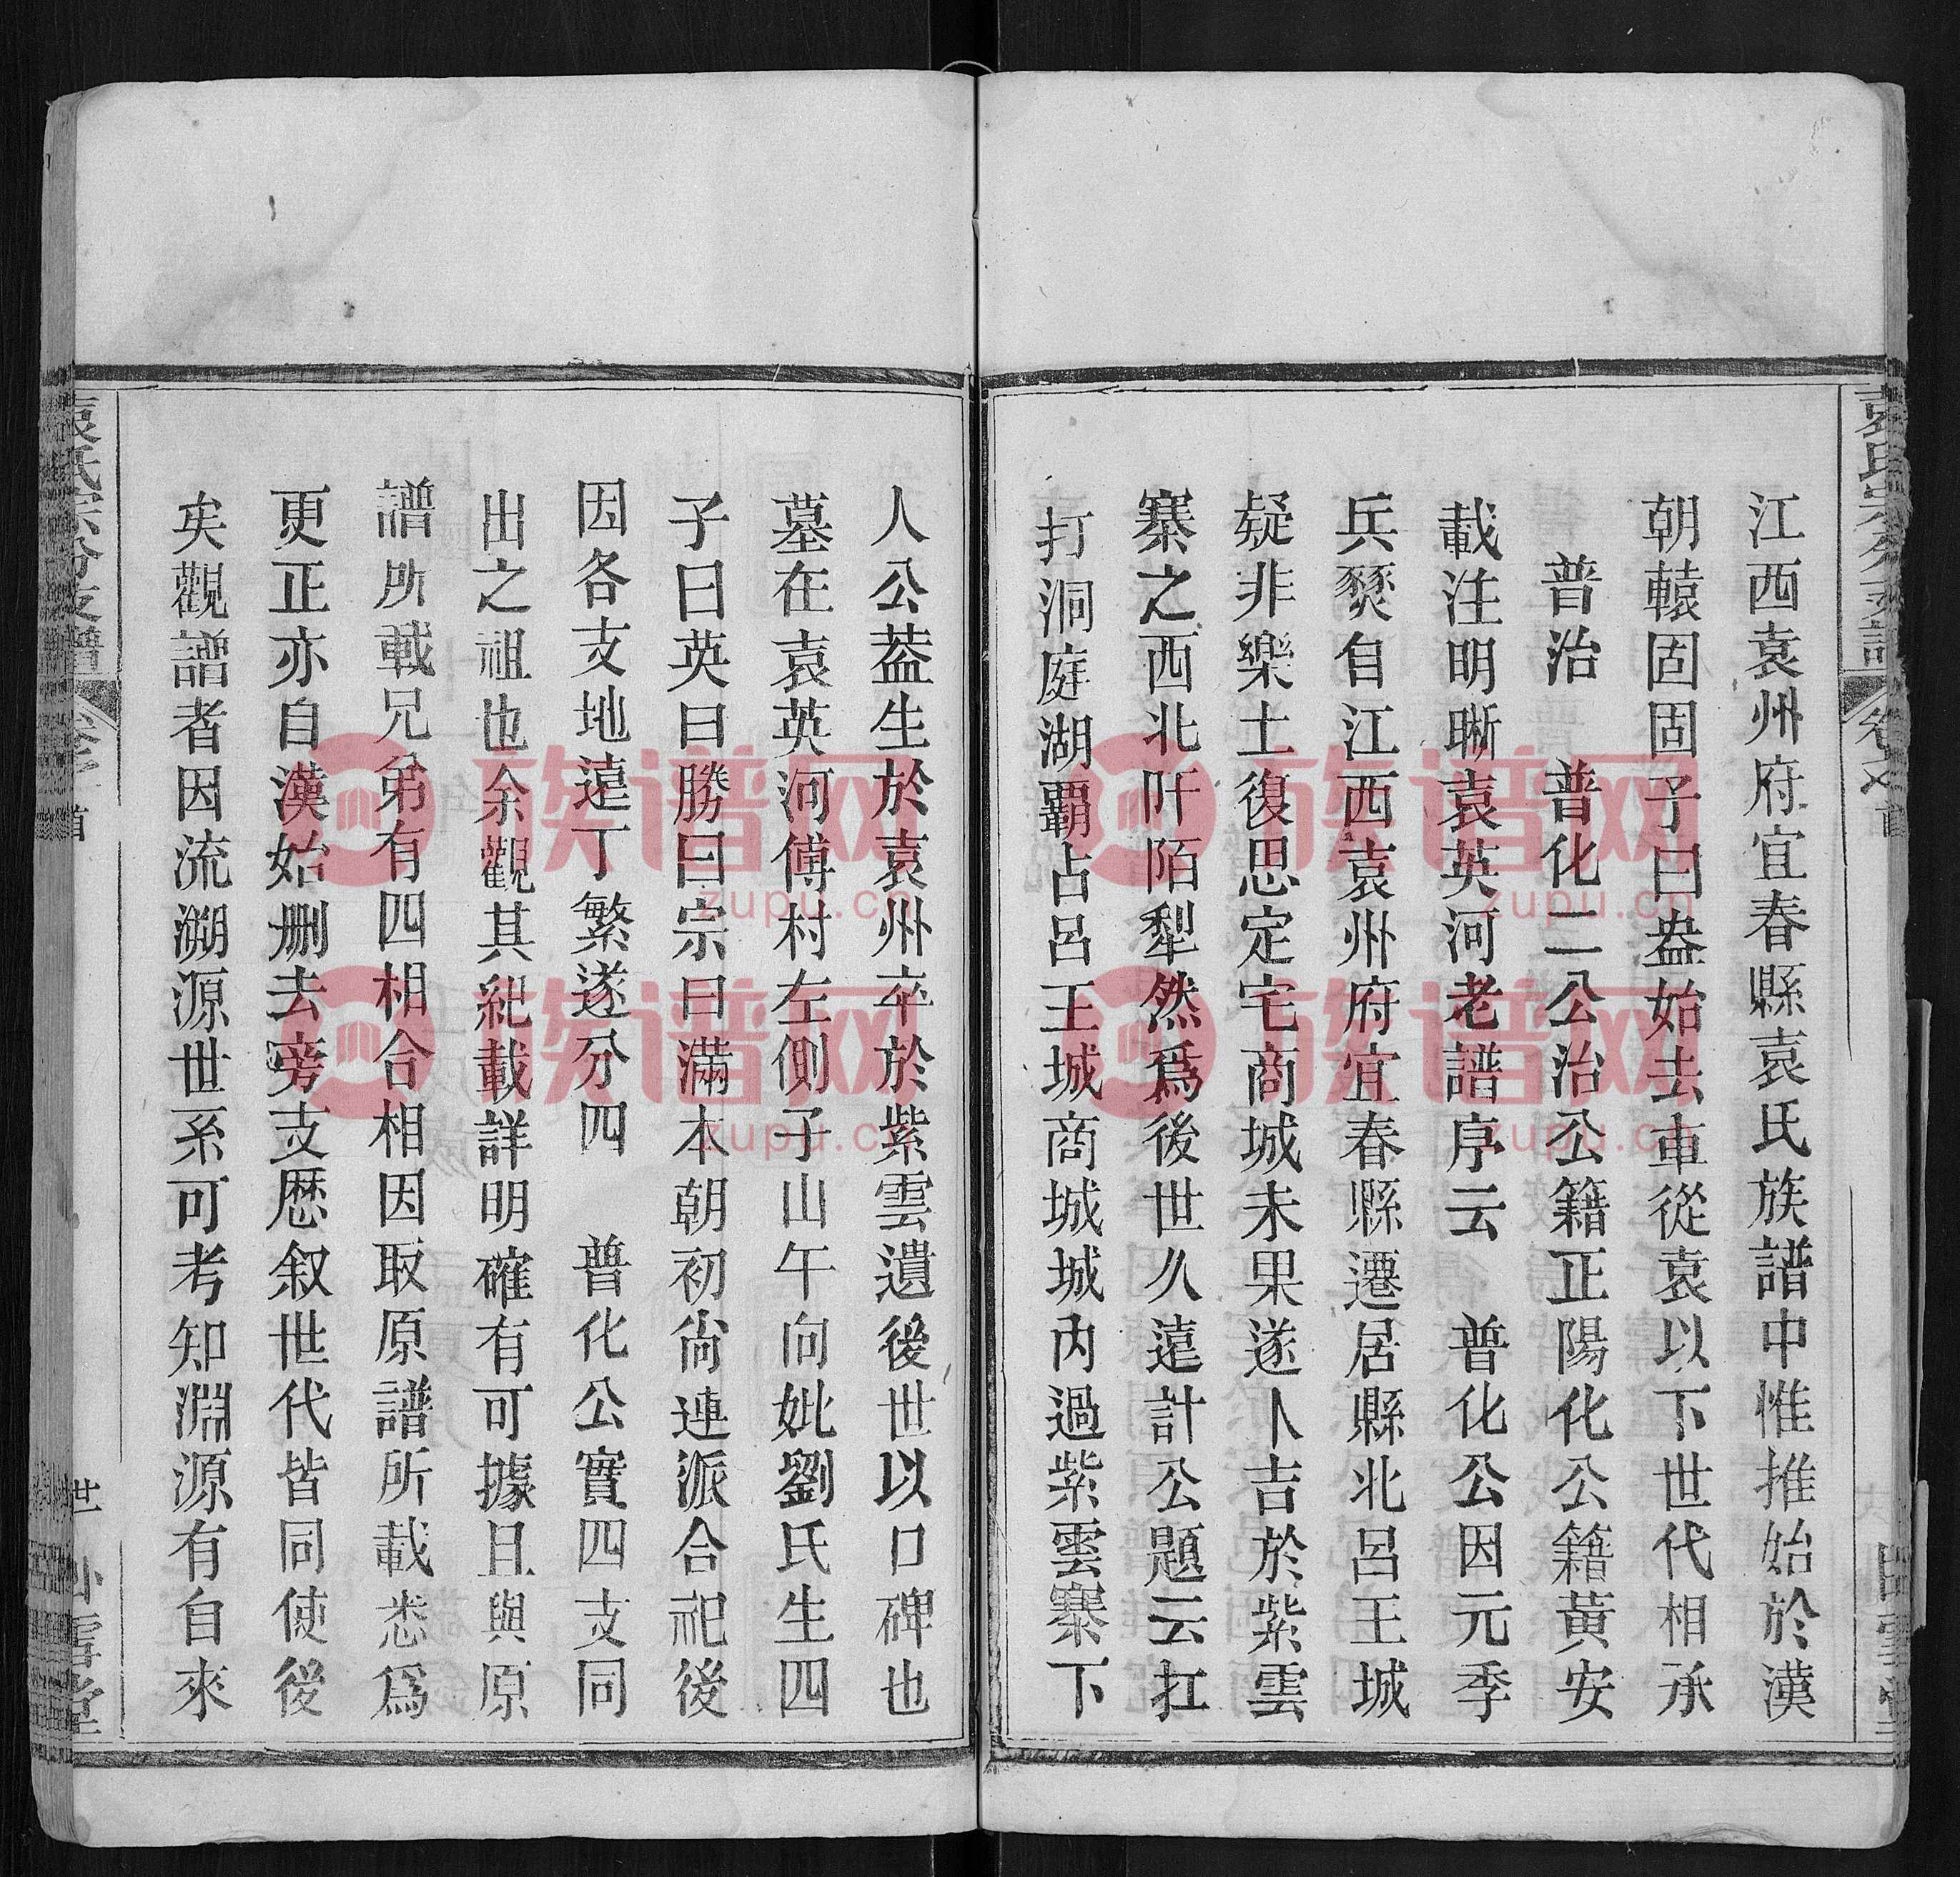 江西袁州府宜春縣袁氏族譜中惟推始於漢
朝轅固固子曰盎始去車從袁以下世代相承
普治　普化二公治公籍正陽化公籍黃安
載注明晣袁英河老譜序云　普化公因元季
兵燹自江西袁州府宜春縣遷居縣北呂王城
疑非樂土復思定宅商城未果遂卜吉於紫雲
寨之西北阡陌犁然爲後世久遠計公題云扛
打洞庭湖霸占呂王城商城城內過紫雲寨下
人公葢生於袁州卒於紫雲遺後世以口碑也
墓在袁英河傅村左側子山午向妣劉氏生四
子曰英曰勝曰宗曰滿本朝初尙連派合祀後
因各支地遠丁繁遂分四　普化公實四支同
出之祖也余觀其紀載詳明確有可據且與原
譜所載兄弟有四相合相因取原譜所載悉爲
更正亦自漢始刪去旁支歷叙世代皆同使後
矣觀譜者因流溯源世系可考知淵源有自來
袁氏宗分支譜
首